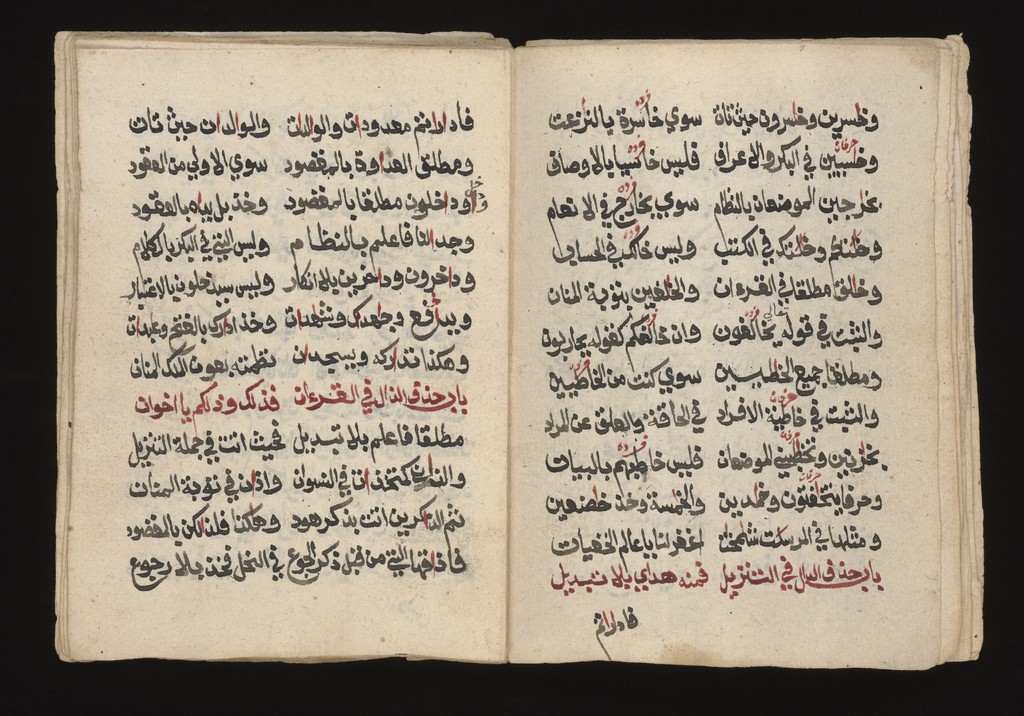 وخسرين وخسرون حيث تات سوي خاسرة بالنزعت
وخسبين في البكر والاعراف فليس خاسيا بالاوصاف
بخارجين الموضعان بالنظام سوي بخارج في الانعام
وخلتكم وخلتك في الكتب وليس خالك في الحساب
وخالق مطلقا في القرءان والخلفين بتوبة المنان
والثبت في قوله تعالى يخالفون وان خالفكم كقوله يحاربون
ومطلقا جميع الخطبين سوي كنت من الخاطبين
والثبت في خاطية الافراد في الحاقة والعلق عن المراد
بخازنين وتخطبني الموضعان فليس خاطبهم بالبيات
وحرفا يتخفتون وخمدين والخمسة وخذ خضعين
ومثلها في الرسم شمخت اغفر لنا يا عالم الخفيات
باب حذف الدال في التنزيل فمنه هداي بلا تبديل
فادارتم
فادارتم معدودات والوالدات والوالدان حيث تات
ومطلق العداوة بالمقصود سوي الاولي من العقود
وداخلون مطلقا بالمقصود وخذ بل يداه بالعقود
وجدالنا فاعلم بالنظام وليس التي في البكر بالكلام
وداخرون وداخرين بلا انكار وليس سيدخلون بالاعتبار
ويدفع وجهدك وشهدات وخذ ادرك بالفتح وعبدات
وهكذا تداركه ويسجدان نظمته بعون الملك المنان
باب حذف الذال في القرءان فذلك وذلكم يا اخوان
مطلقا فاعلم بلا تبديل فحيث اتت في جملة التنزيل
كتخذان في النسوان واذان في توبة المنان
ثم الذاكرين اتت بذكر هود وهكذا فذلكن بالمقصود
فاذاقها التي من قبل ذكر الجوع في النحل فخذ بلا رجوع